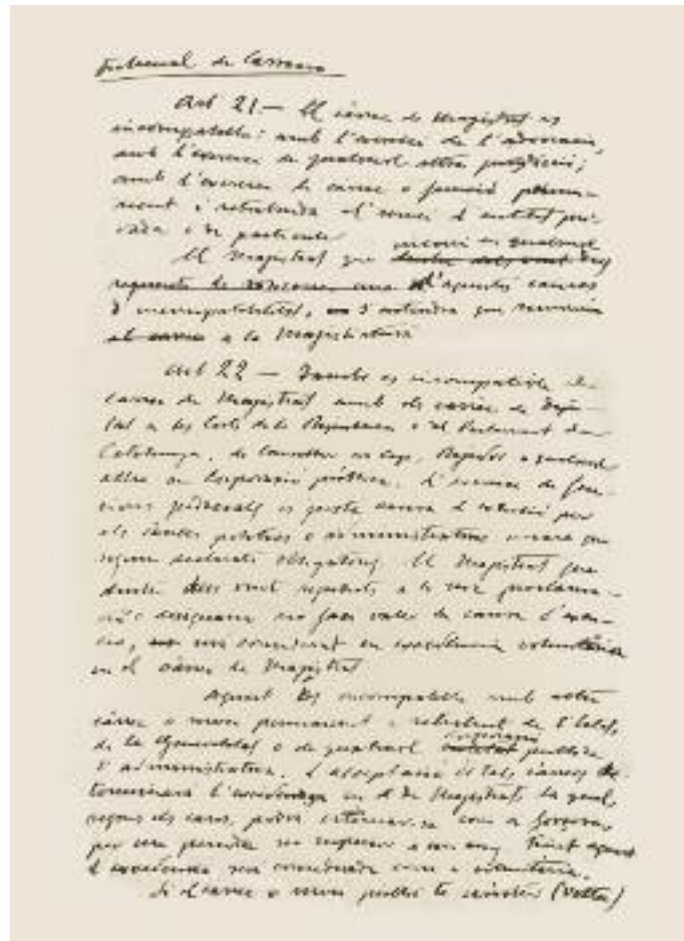 Tribunal de Cassació
Art 21.— El càrrec de Magistrat es
incompatible: amb l'exercici de l'advocacia,
amb l'exercici de qualsevol altra jurisdicció;
amb l'exercici de càrrec o funció perma-
nent i retribuida al servei d'entitat pri-
vada o de particular
El Magistrat que incorri en qualsevol
d'aquestes causes
d'incompatibilitat, s'entendrà que renuncia
a la Magistratura
Art 22 — També es incompatible el
càrrec de Magistrat amb els càrrecs de Dipu-
tat a les Corts de la República o al Parlament de
Catalunya, de Conseller en cap, Regidor o qualsevol
altre en Corporació pública. L'exercici de fun-
cions judicials es justa causa d'excusa per
els càrrecs polítics o administratius encara que
siguin declarats obligatoris. El Magistrat que
dintre dels vuit següents a la seva proclama-
ció o no faci valer la causa d'excu-
sa, serà considerat en excedència voluntària
en el càrrec de Magistrat
Aquest es incompatible amb altre
càrrec o servei permanent o retribuit de l'Estat,
de la Generalitat o de qualsevol corporació pública
o administrativa. L'acceptació de tals càrrecs de-
terminarà l'excedència en el de Magistrat, la qual,
segons els casos, podrà com a forçosa
per un període no superior a un any
l'excedència serà considerada com a voluntària.
Si el càrrec o servei públic té caràcter (volta)